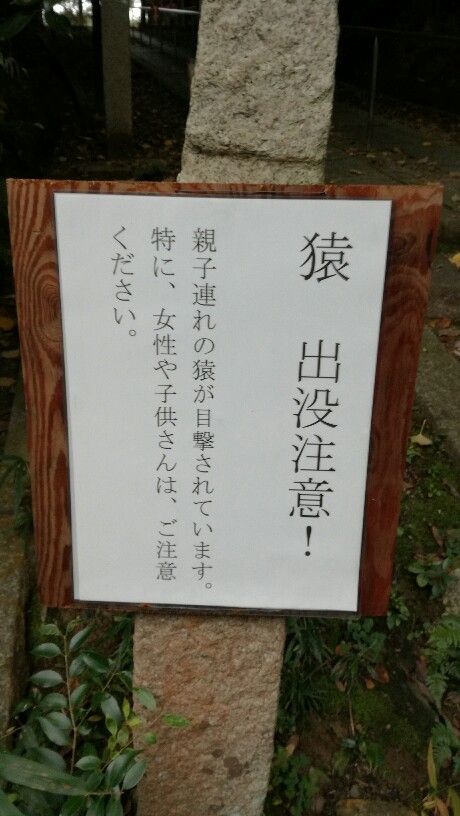 猿　出没注意！
親子連れの猿が目撃されています。
特に、女性や子供さんは、ご注意
ください。